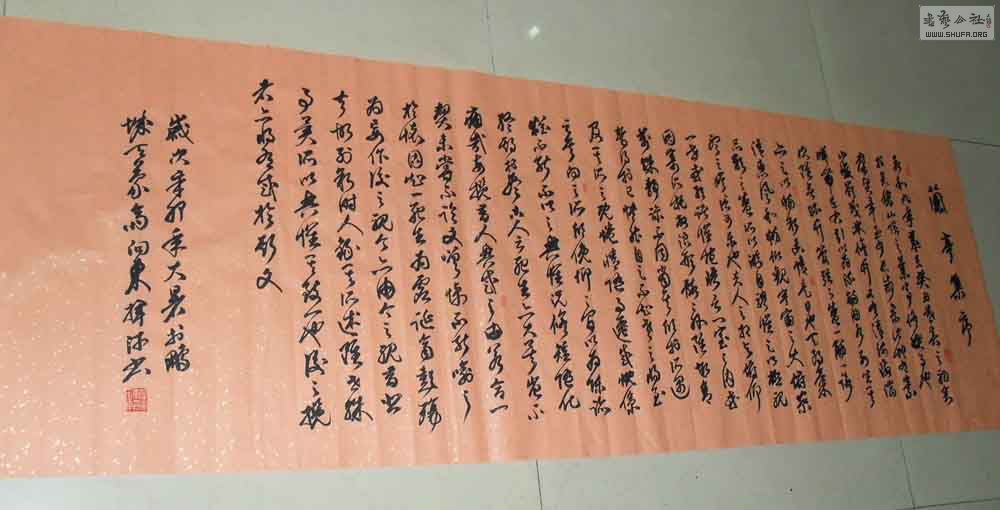 蘭亭集序
永和九年歲在癸丑暮春之初會
於會稽山陰之蘭亭修禊事也
群賢畢至少長咸集此地有崇
山峻領茂林修竹又有清流激湍
映帶左右引以為流觴曲水列坐其
次雖無絲竹管弦之盛一觴一詠
亦足以暢敘幽情是日也天朗氣
清惠風和暢仰觀宇宙之大俯察
品類之盛所以遊目騁懷足以極視
聽之娛信可樂也夫人之相與俯仰
一世或取諸懷抱悟言一室之內或
因寄所託放浪形骸之外雖趣舍
萬殊靜躁不同當其欣於所遇
暫得於己快然自足不知老之將至
及其所之既倦情隨事遷感慨係
之矣向之所欣俛仰之間以為陳跡
猶不能不以之興懷況修短隨化
終期於盡古人云死生亦大矣豈不
痛哉每攬昔人興感之由若合一
契未嘗不臨文嗟悼不能喻之
於懷固知一死生為虛誕齊彭殤
為妄作後之視今亦由今之視昔悲
夫故列敘時人錄其所述雖世殊
事異所以興懷其致一也後之攬
者亦將有感於斯文
歲次辛卯年大暑於鵬
城
書艺公社
WWW.SHUFA.ORG